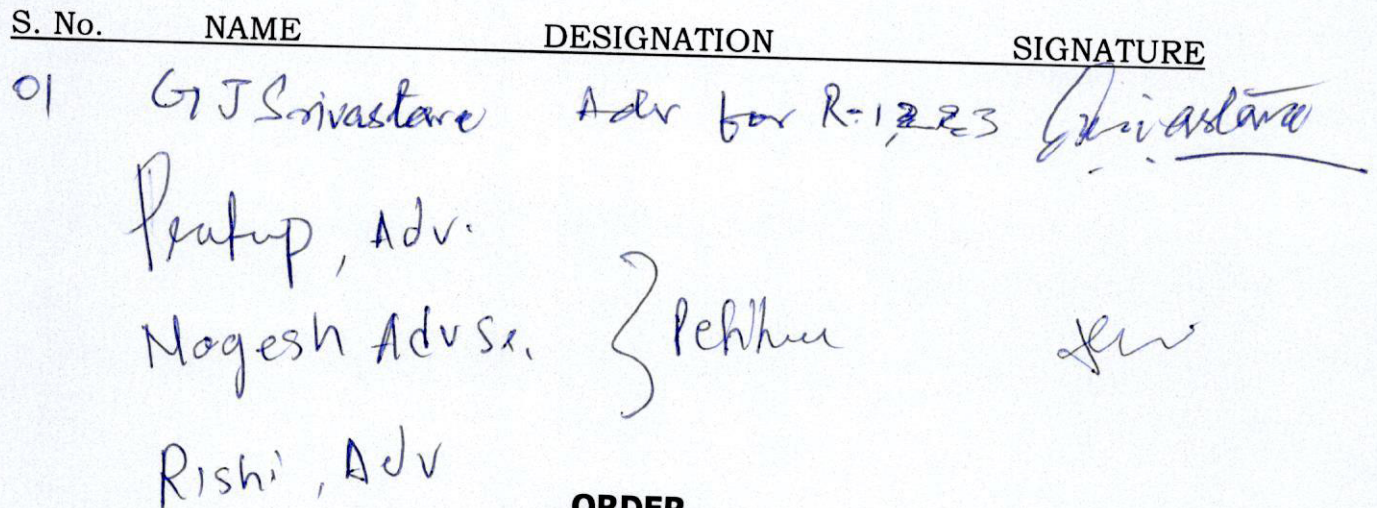 S. No. NAME DESIGNATION SIGNATURE
01 G J Srivastava Adv for R-1, 2 & 3 Srivastava
Pratap, Adv.
Mogesh Adv Sr. } Petitioner
Rishi, Adv
ORDER